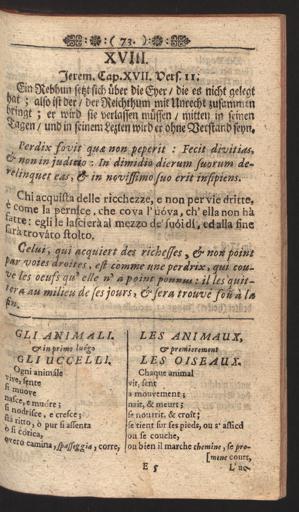 ( 73. )
XVIII.
Jerem. Cap. XVII. Vers. 11.
Ein Rebhun setzt sich über die Eyer / die es nicht gelegt
hat ; also ist der / der Reichthum mit Unrecht zusammen
bringt ; er wird sie verlassen müssen / mitten in seinen
Tagen / und in seinem Letzten wird er ohne Verstand seyn.
Perdix fovit quæ non peperit : Fecit divitias,
& non in judicio : In dimidio dierum suorum de-
relinquet eas, & in novissimo suo erit insipiens.
Chi acquista delle ricchezze, e non per vie dritte,
è come la pernice, che cova l'uóva, ch'ella non hà
fatte: egli le lascierà al mezzo de' suói dì, ed alla fine
sarà trovato stolto.
Celui, qui acquiert des richesses, & non point
par voies droites, est comme une perdrix, qui cou-
ve les oeufs qu'elle n'a point ponnus : il les quit-
tera au milieu de ses jours, & sera trouvé fou à la
fin.
GLI ANIMALI.
& in primo luogo
GLI UCCELLI.
Ogni animále
vive, sente
si muove
nasce, e muóre;
si nodrisce, e cresce;
stà ritto, ò pur si assenta
ò si córica,
overo camina, spasseggia, corre,
LES ANIMAUX,
& premierement
LES OISEAUX.
Chaque animal
vit, sent
a mouvement;
nait, & meurt;
se nourrit, & croît;
se tient sur ses pieds, ou s'assied
ou se couche,
ou bien il marche chemine, se pro-
[mene court,
E 5